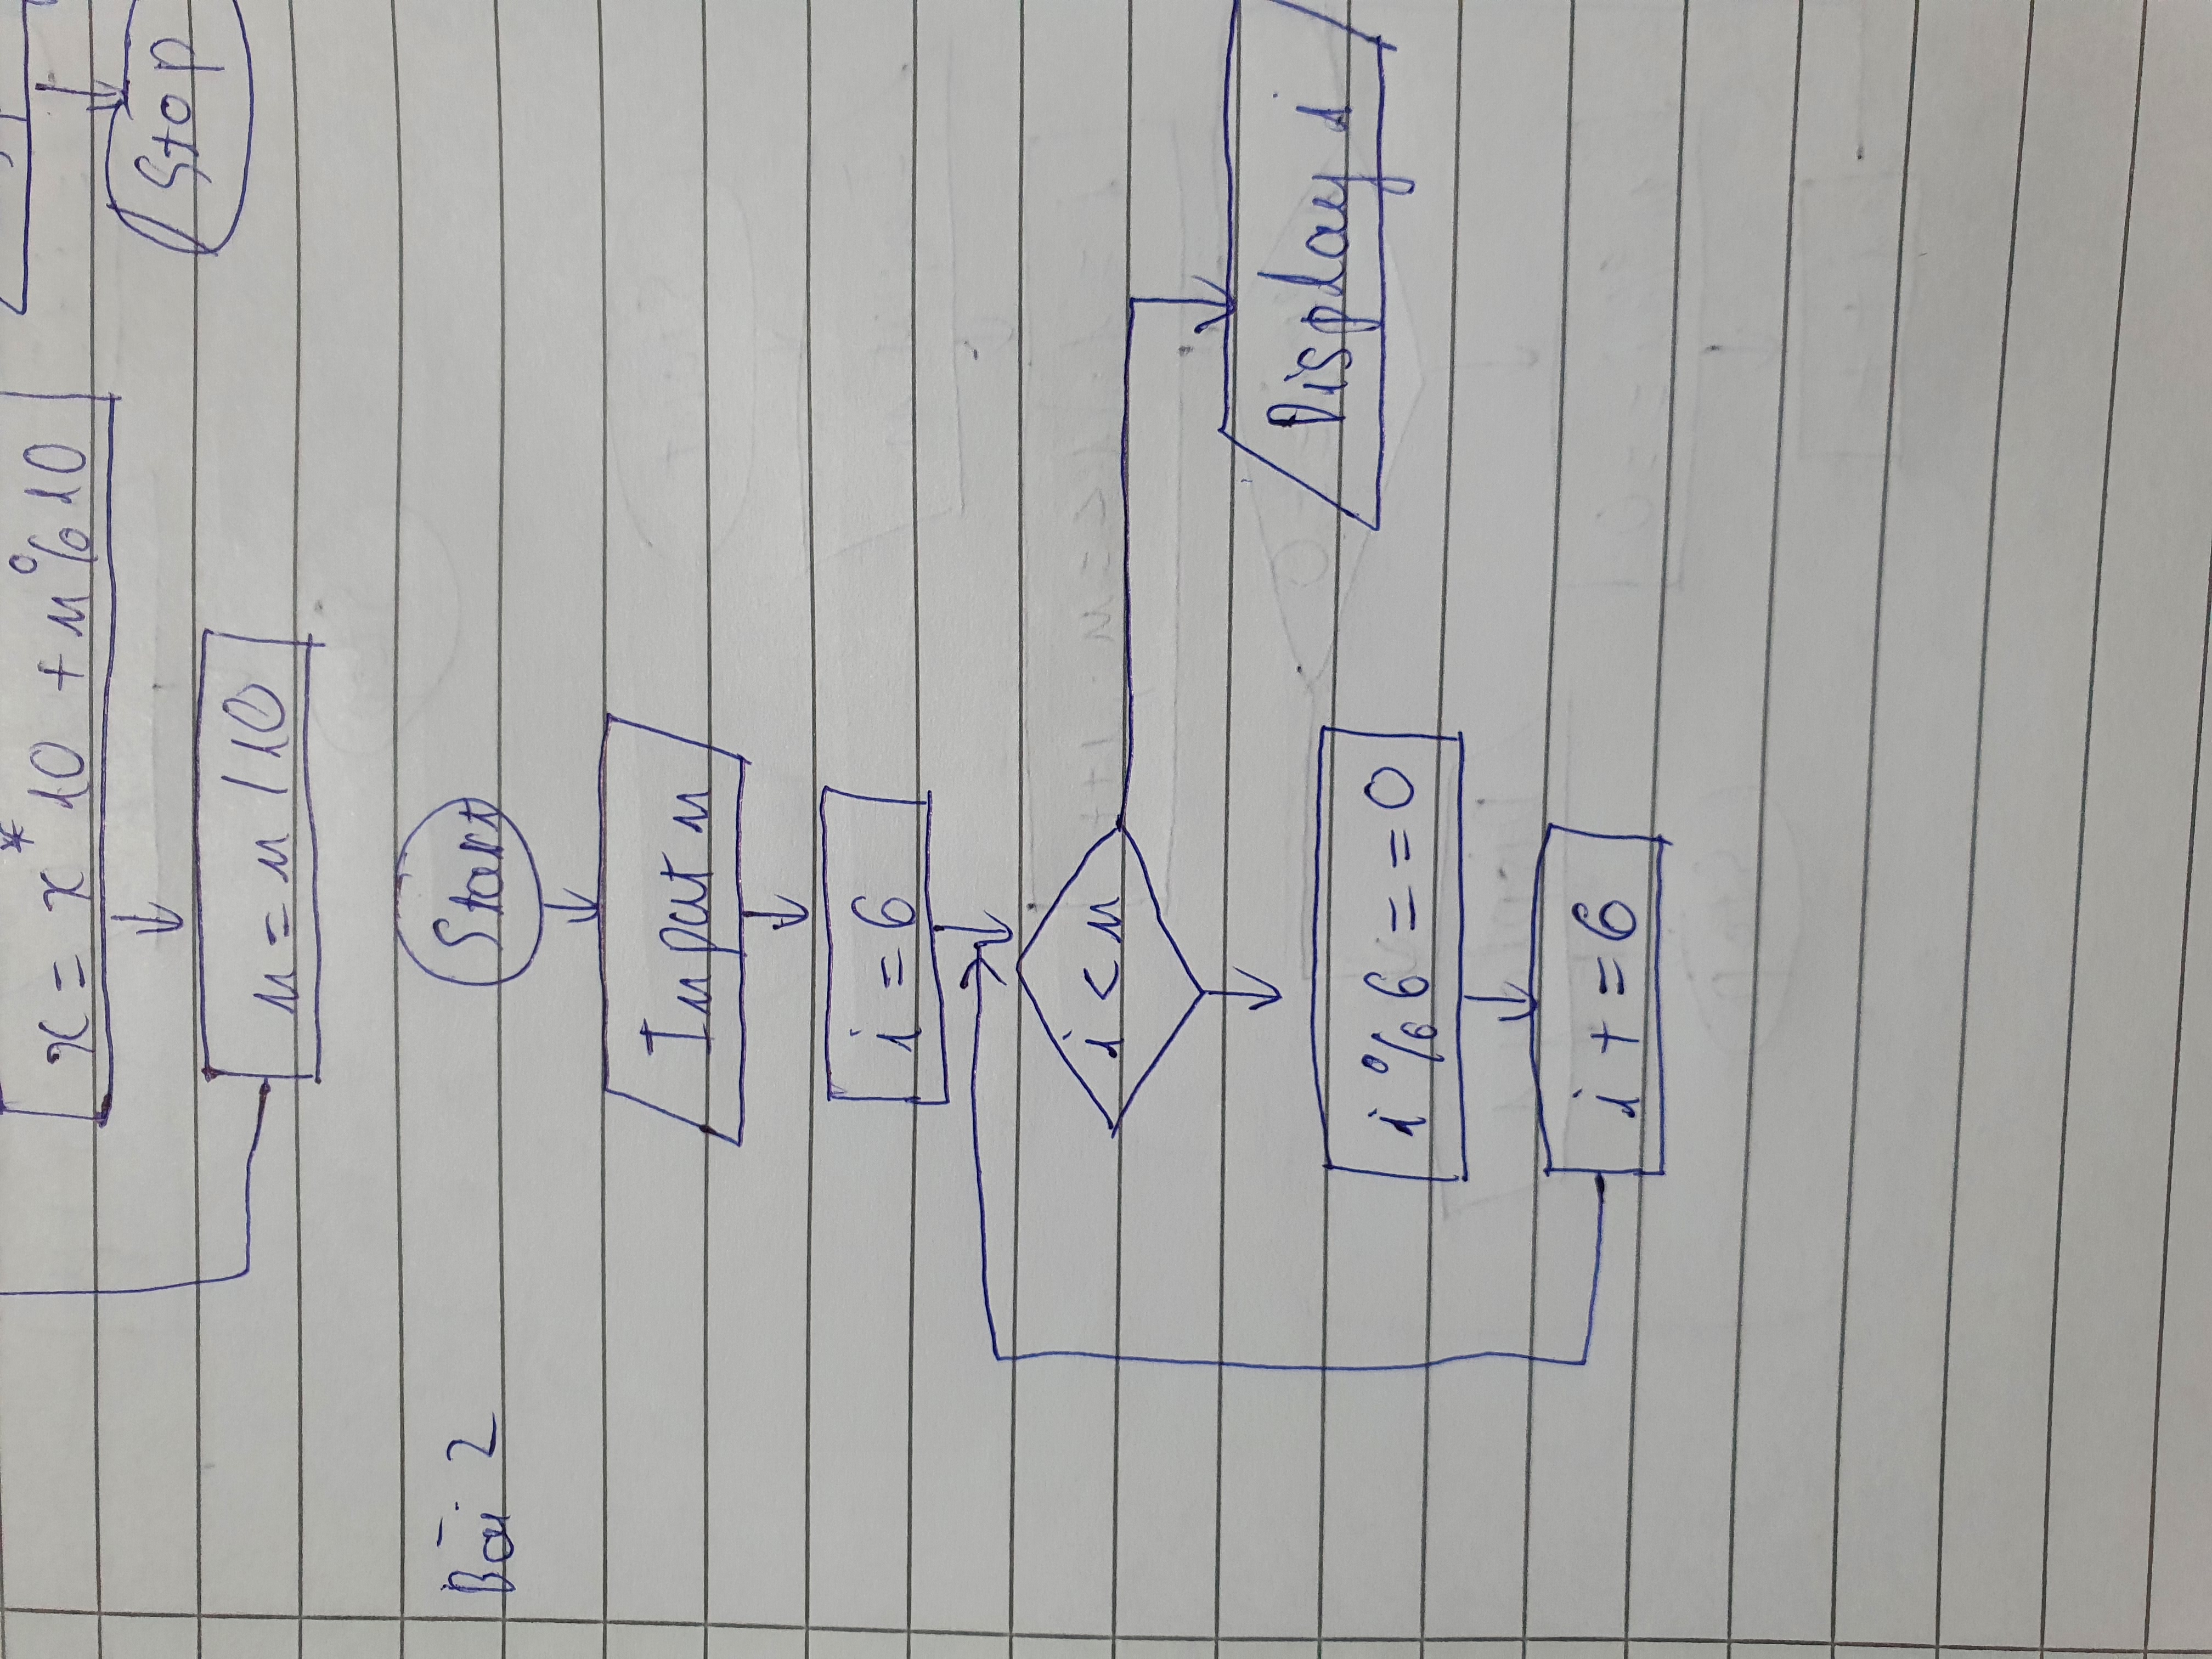 x = x * 10 + n % 10
Stop
n = n / 10
Bài 2
Start
Input n
i = 6
i < n
Display i
i % 6 = = 0
i + = 6